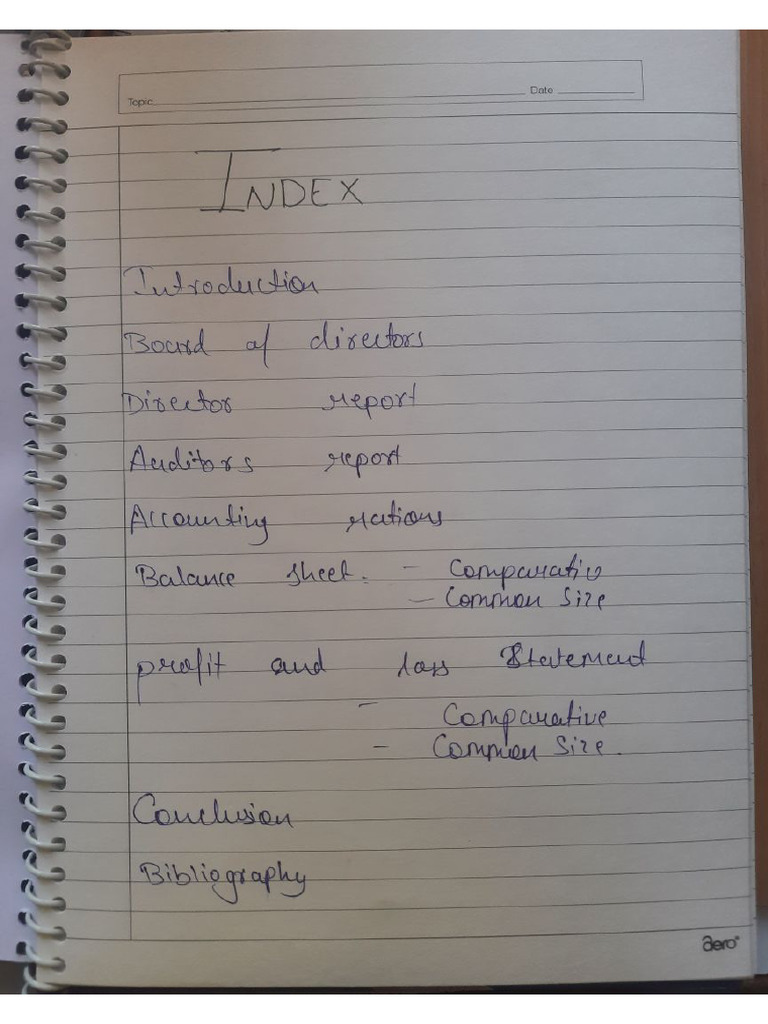 Topic Date
INDEX
Introduction
Board of directors
Director report
Auditors report
Accounting rations
Balance sheet. - Comparativ
- Common Size
profit and loss Statement
- Comparative
- Common Size.
Conclusion
Bibliography
aero